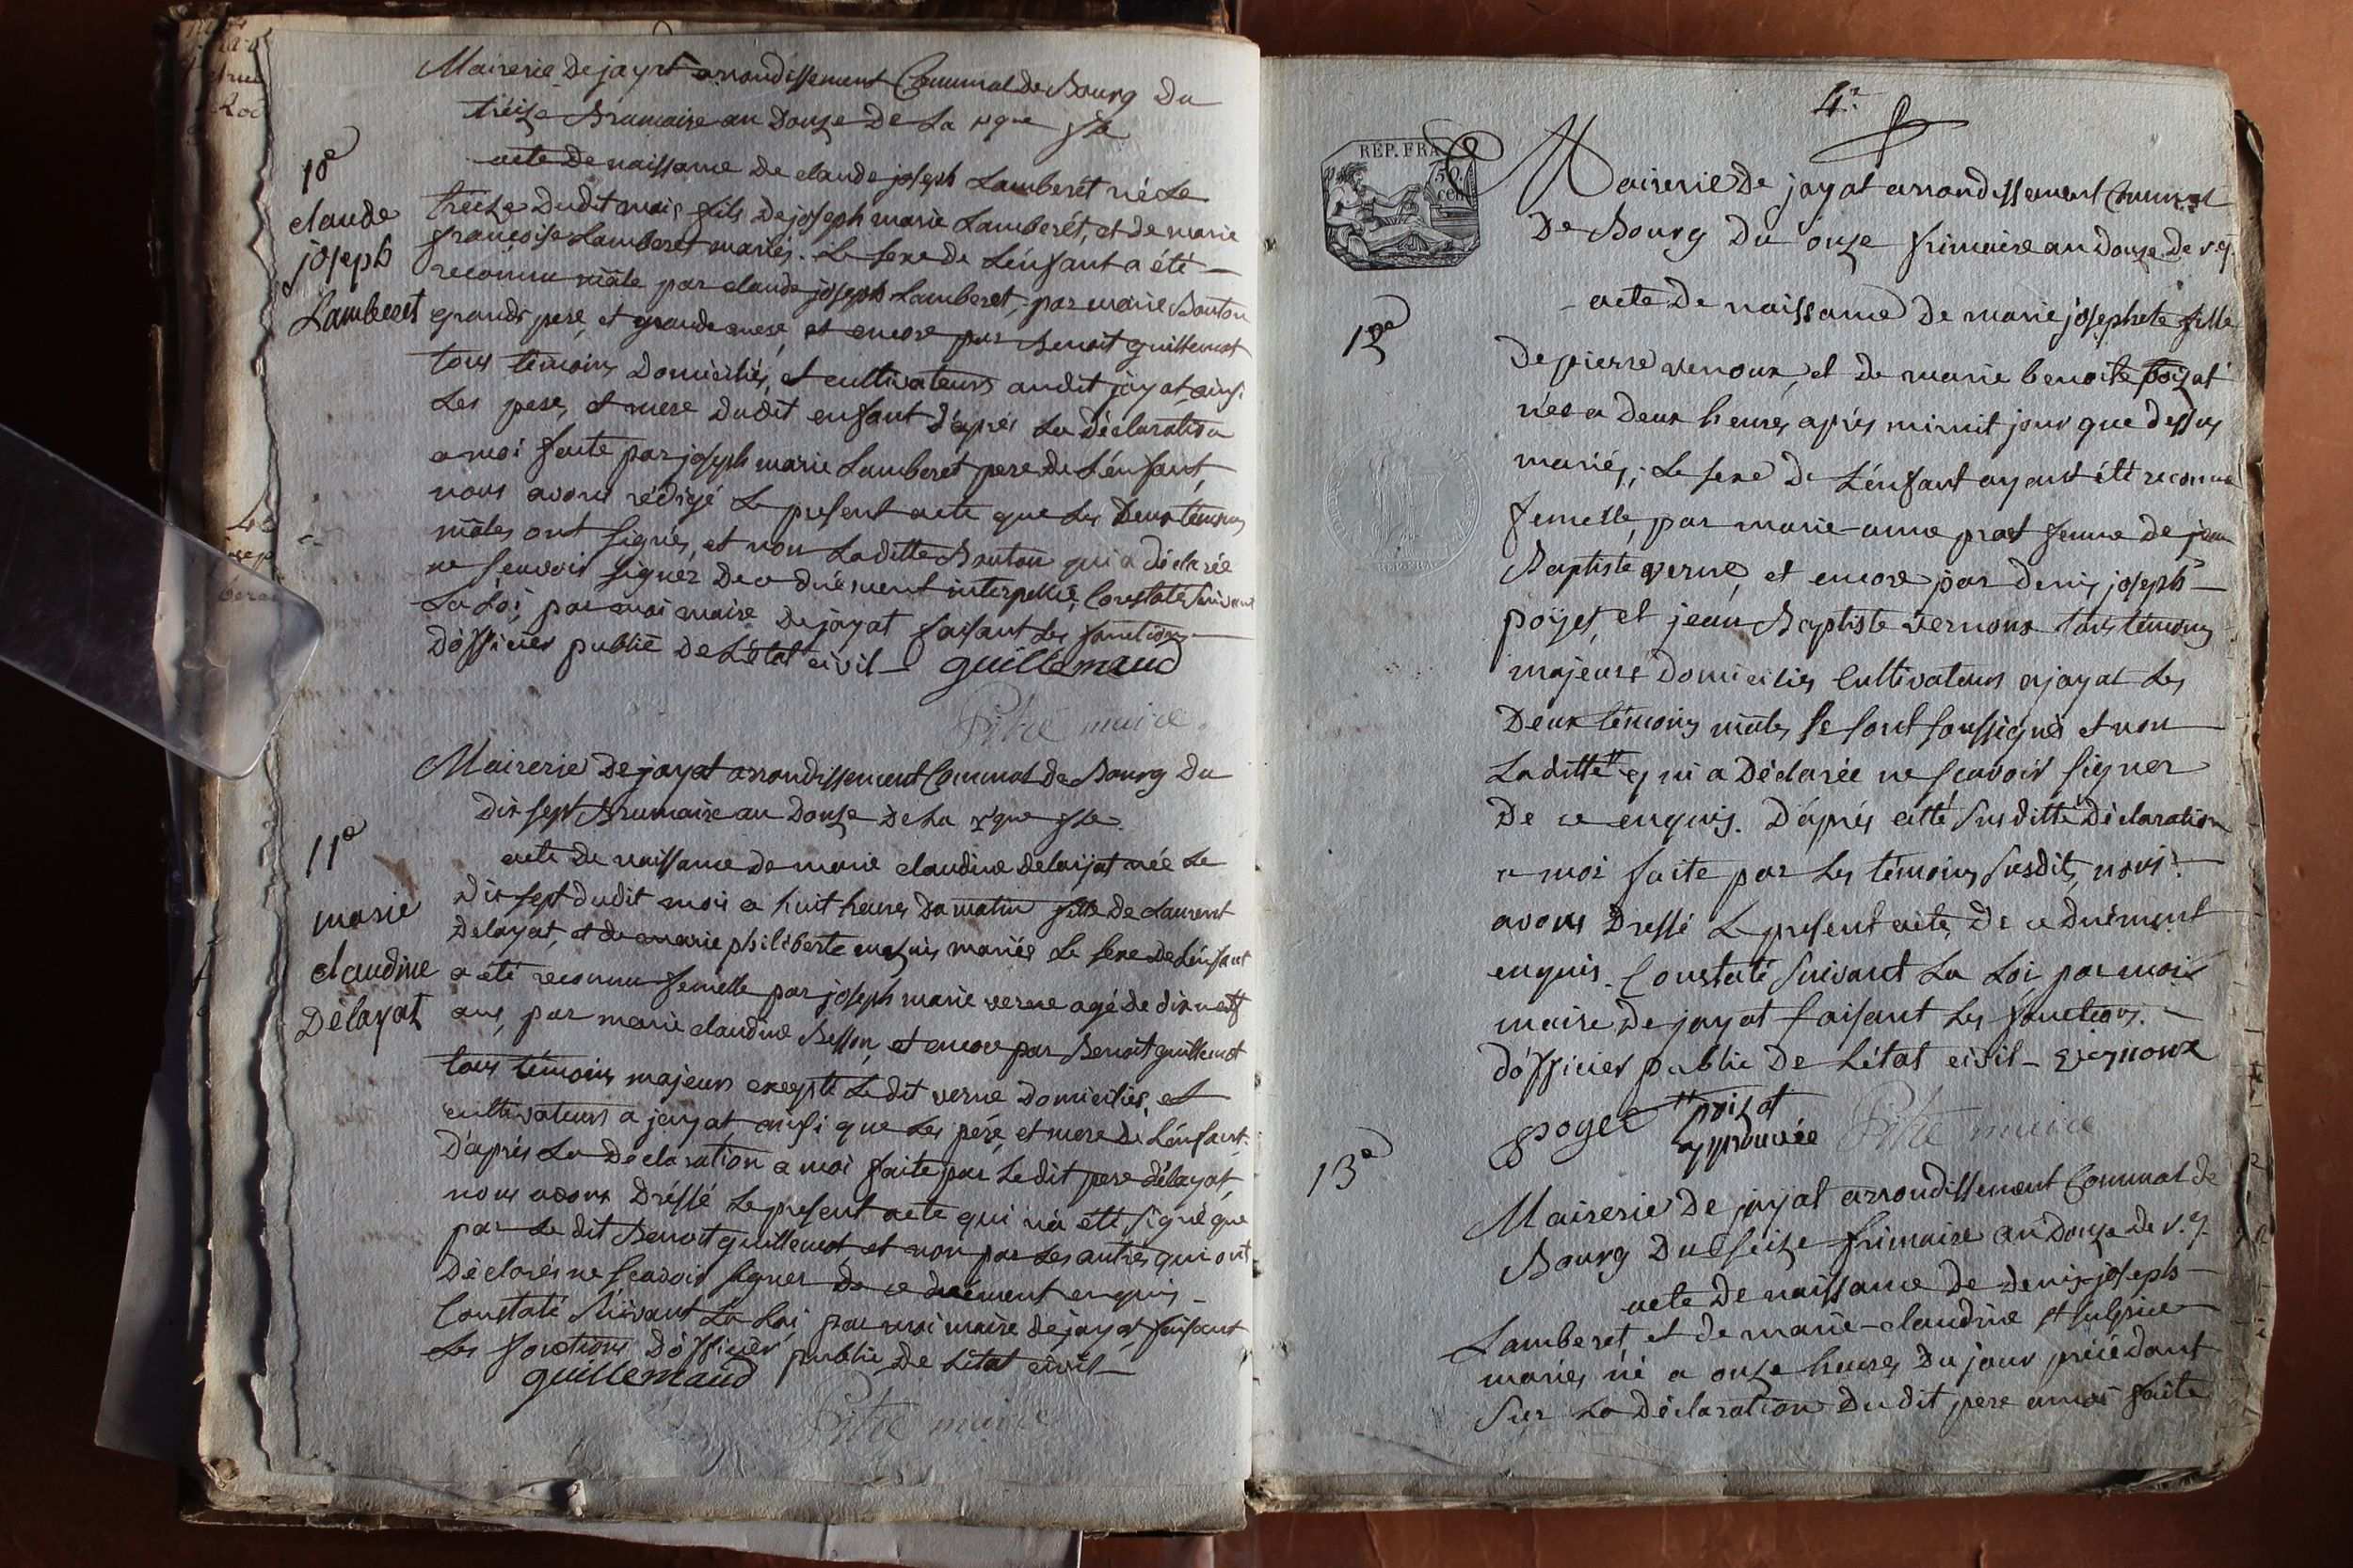 Mairerie De jayat arrondissement Communal De Bourg Du
treize Brumaire an Douze De La
acte De naissance De claude joseph Lamberét né Le
10e
claude
joseph
Lamberet
treize Dudit mois fils De joseph marie Lamberét, et de marie
françoise Lamberet mariés. Le sexe de L'énfant a été
reconnu mâle par claude joseph Lamberet, par marie Bouton
grands pere, et grande mere, et encore par Benoit guillemot
tous témoins Domiciliés, et cultivateurs audit jayat, ainsi
Les pere, et mere Dudit enfant D'aprés La Déclaration
a moi faite par joseph marie Lamberet pere de L'énfant,
nous avons rédigé Le present acte que Les Deux témoins
mâles ont signés, et non Laditte Bouton qui a déclarée
ne scavoir signer De ce duëment interpellée, Constaté suivant
La Loi, par moi maire De jayat faisant Les fonctions
D'officier public De L'état civil guillemaud
Pitre maire
Mairerie De jayat arrondissement Communal De Bourg Du
Dix sept Brumaire an Douze De La
11e
marie
claudine
Délayat
acte de naissance de marie claudine delaijat née Le
Dix sept dudit mois a huit heures Du matin fille De Laurent
Delayat, et de marie philiberte mariés Le sexe De L'énfant
a été reconnu femelle par joseph marie verne agé de dix neuf
ans, par marie claudine Besson, et encore par Benoit guillemot
tous témoins majeurs excepté Ledit verne Domiciliés, et
cultivateurs a jayat ainsi que Les péré et mere De L'énfant.
D'aprés La Déclaration a moi faite par Ledit pere délayat,
nous avons Dréssé Le present acte qui n'a été signé que
par Le dit Benoit guillemot et non par Les autrés qui ont
Déclarés ne scavoir signer De ce duëment enquis
Constaté Suivant La Loi par moi maire de jayat faisant
Les fonctions D'officier public De L'état civil
guillemaud
Pitre maire
4e
REP. FRA
50
cen
Mairerie De jayat arrondissement Communal
De Bourg Du onze frimaire an Douze De
12e
acte De naissance De marie josephete fille
De pierre vernoux, et De marie benoite poizat
née a Deux heures aprés minuit jour que dessus
mariés, Le sexe De L'énfant ayant été reconnu
femelle, par marie-anne prost femme de jean
Baptiste verne, et encore par Denis joseph
poijet, et jean Baptiste vernoux tous témoins
majeurs Domiciliés Cultivateurs a jayat Les
Deux témoins mâles se sont soussignés et non
Laditte qui a Déclarée ne scavoir signer
De ce enquis. D'aprés cetté Susditté Déclaration
a moi faite par Les témoins susdits, nous
avons Dressé Le present acte, De ce duëment
enquis. Constaté Suivant La Loi par moi
maire De jayat faisant Les fonctions
d'officier public De L'état civil
poget poizat
approuvée Pitre maire
13e
Mairerie De jayat arrondissement Communal de
Bourg Du seize frimaire an Douze De
acte De naissance De Denis-joseph
Lamberet, et de marie-claudine St sulpice
mariés né a onze heures Du jour précédant
Sur La Déclaration Dudit pere a moi faite